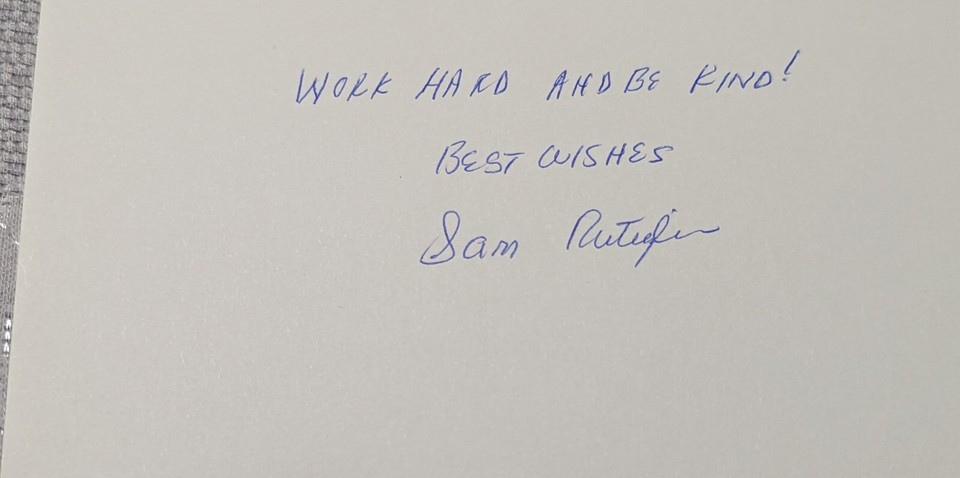 WORK HARD AND BE KIND!
BEST WISHES
Sam